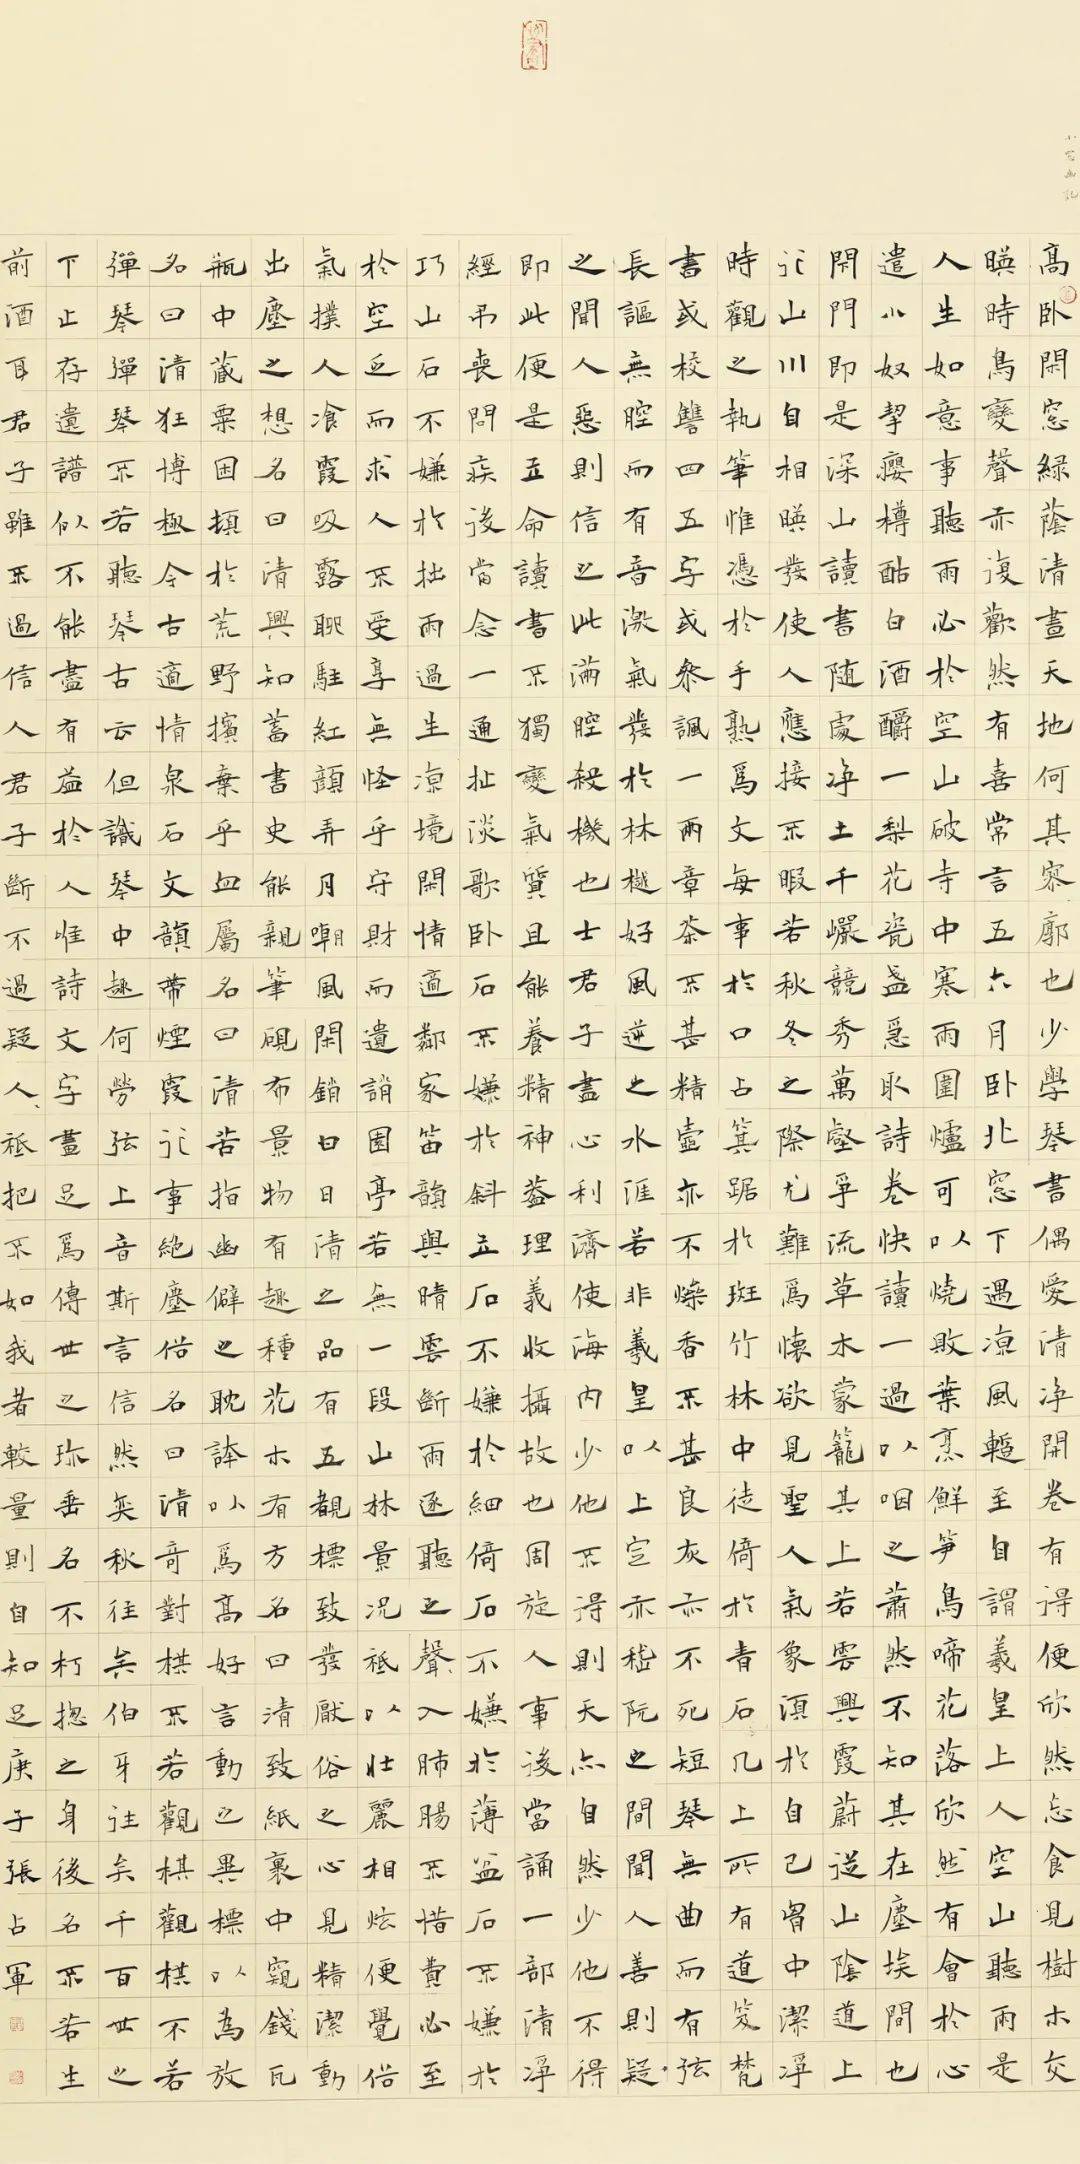 小窗幽記
高卧閑窓緑蔭清晝天地何其寥廓也少學琴書偶愛清净開卷有得便欣然忘食見樹木交
暎時鳥變聲亦復歡然有喜常言五六月卧北窓下遇凉風暫至自謂羲皇上人空山聽雨是
人生如意事聽雨必於空山破寺中寒雨圍爐可以燒敗葉烹鮮笋鳥啼花落欣然有會於心
遣小奴挈癭樽酤白酒釂一梨花瓷盞急取詩卷快讀一過以咽之蕭然不知其在塵埃間也
閉門即是深山讀書随處净土千巖競秀萬壑爭流草木蒙籠其上若雲興霞蔚從山陰道上
行山川自相暎發使人應接不暇若秋冬之際尤難爲懷欲見聖人氣象須於自己胷中潔凈
時觀之執筆惟憑於手熟爲文每事於口占箕踞於斑竹林中徙倚於青石几上所有道笈梵
書或校讐四五字或參諷一兩章茶不甚精壺亦不燥香不甚良灰亦不死短琴無曲而有弦
長謳無腔而有音激氣發於林樾好風逆之水涯若非羲皇以上定亦嵇阮之間聞人善則疑
之聞人惡則信之此滿腔殺機也士君子盡心利濟使海内少他不得則天亦自然少他不得
即此便是立命讀書不獨變氣質且能養精神蓋理義收攝故也周旋人事後當誦一部清凈
經弔喪問疾後當念一通扯淡歌卧石不嫌於斜立石不嫌於細倚石不嫌於薄盆石不嫌於
巧山石不嫌於拙雨過生凉境閑情適鄰家笛韻與晴雲斷雨逐聽之聲〻入肺腸不惜費必至
於空乏而求人不受享無怪乎守財而遺誚園亭若無一段山林景况祗以壯麗相炫便覺俗
氣撲人飡霞吸露聊駐紅顔弄月嘲風閑銷白日清之品有五覩標致發厭俗之心見精潔動
出塵之想名曰清興知蓄書史能親筆硯布景物有趣種花木有方名曰清致紙裹中窺錢瓦
瓶中藏粟困頓於荒野擯棄乎血屬名曰清苦指幽僻之耽誇以爲高好言動之異標以為放
名曰清狂博極今古適情泉石文韻帶煙霞行事絶塵俗名曰清奇對棋不若觀棋觀棋不若
彈琴彈琴不若聽琴古云但識琴中趣何勞弦上音斯言信然奕秋往矣伯牙往矣千百世之
下止存遺譜似不能盡有益於人惟詩文字畫足爲傳世之珎垂名不朽捴之身後名不若生
前酒耳君子雖不過信人君子斷不過疑人祗把不如我者較量則自知足庚子張占軍